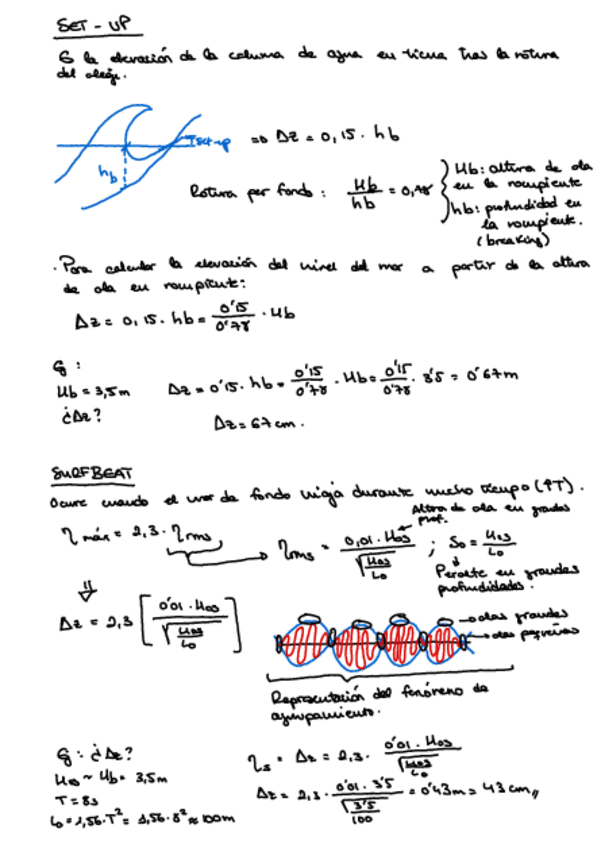 SET-UP
Es la elevación de la columna de agua en tierra tras la rotura
del oleaje.
Tset-up
hb
=> Δz = 0,15 · hb
Rotura por fondo : Hb/hb = 0,78
Hb: altura de ola
en la rompiente
hb: profundidad en
la rompiente.
(breaking)
· Para calcular la elevación del nivel del mar a partir de la altura
de ola en rompiente:
Δz = 0,15 · hb = 0'15/0'78 · Hb
Ej :
Hb = 3,5m
¿Δz?
Δz = 0'15 · hb = 0'15/0'78 · Hb = 0'15/0'78 · 3'5 = 0'67m
Δz = 67cm.
SURFBEAT
Ocurre cuando el mar de fondo viaja durante mucho tiempo (↑T).
Altura de ola en grandes
prof.
η máx = 2,3 · ηrms
ηrms = 0,01 · Hos/√(Hos/Lo) ; So = Hos/Lo
Peralte en grandes
profundidades.
Δz = 2,3 [0'01 · Hos/√(Hos/Lo)]
olas grandes
olas pequeñas
Representación del fenómeno de
agrupamiento.
Ej : ¿Δz?
Hos ~ Hb = 3,5m
T = 8s
Lo = 1,56 · T² = 1,56 · 8² ≈ 100m
ηs = Δz = 2,3 · 0'01 · Hos/√(Hos/Lo)
Δz = 2,3 · 0'01 · 3'5/√(3'5/100) = 0'43m = 43cm,,